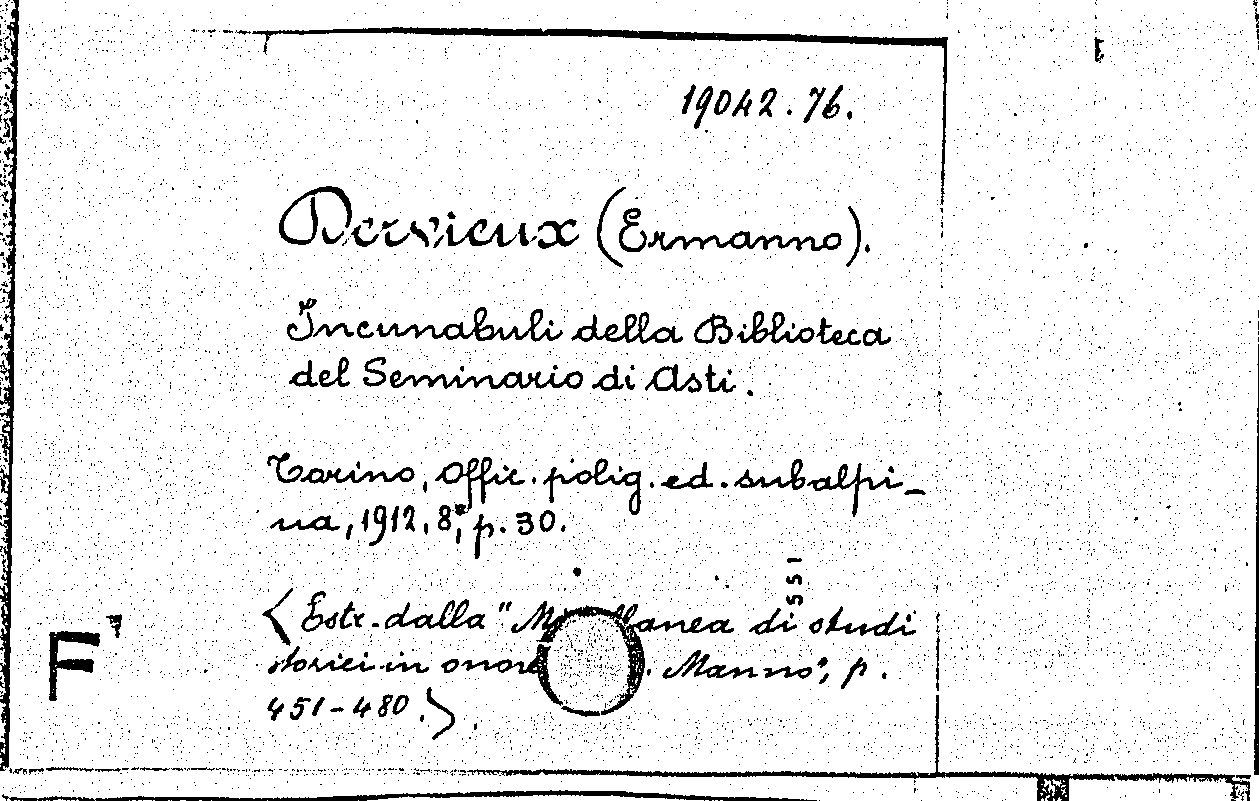 19042.76.
Dervieux (Ermanno).
Incunabuli della Biblioteca
del Seminario di Asti.
Torino, Offic. polig. ed. subalpi-
na, 1912, 8°, p. 30.
551
<Estr. dalla " di studi
storici in . Manno", p.
451-480.>
F